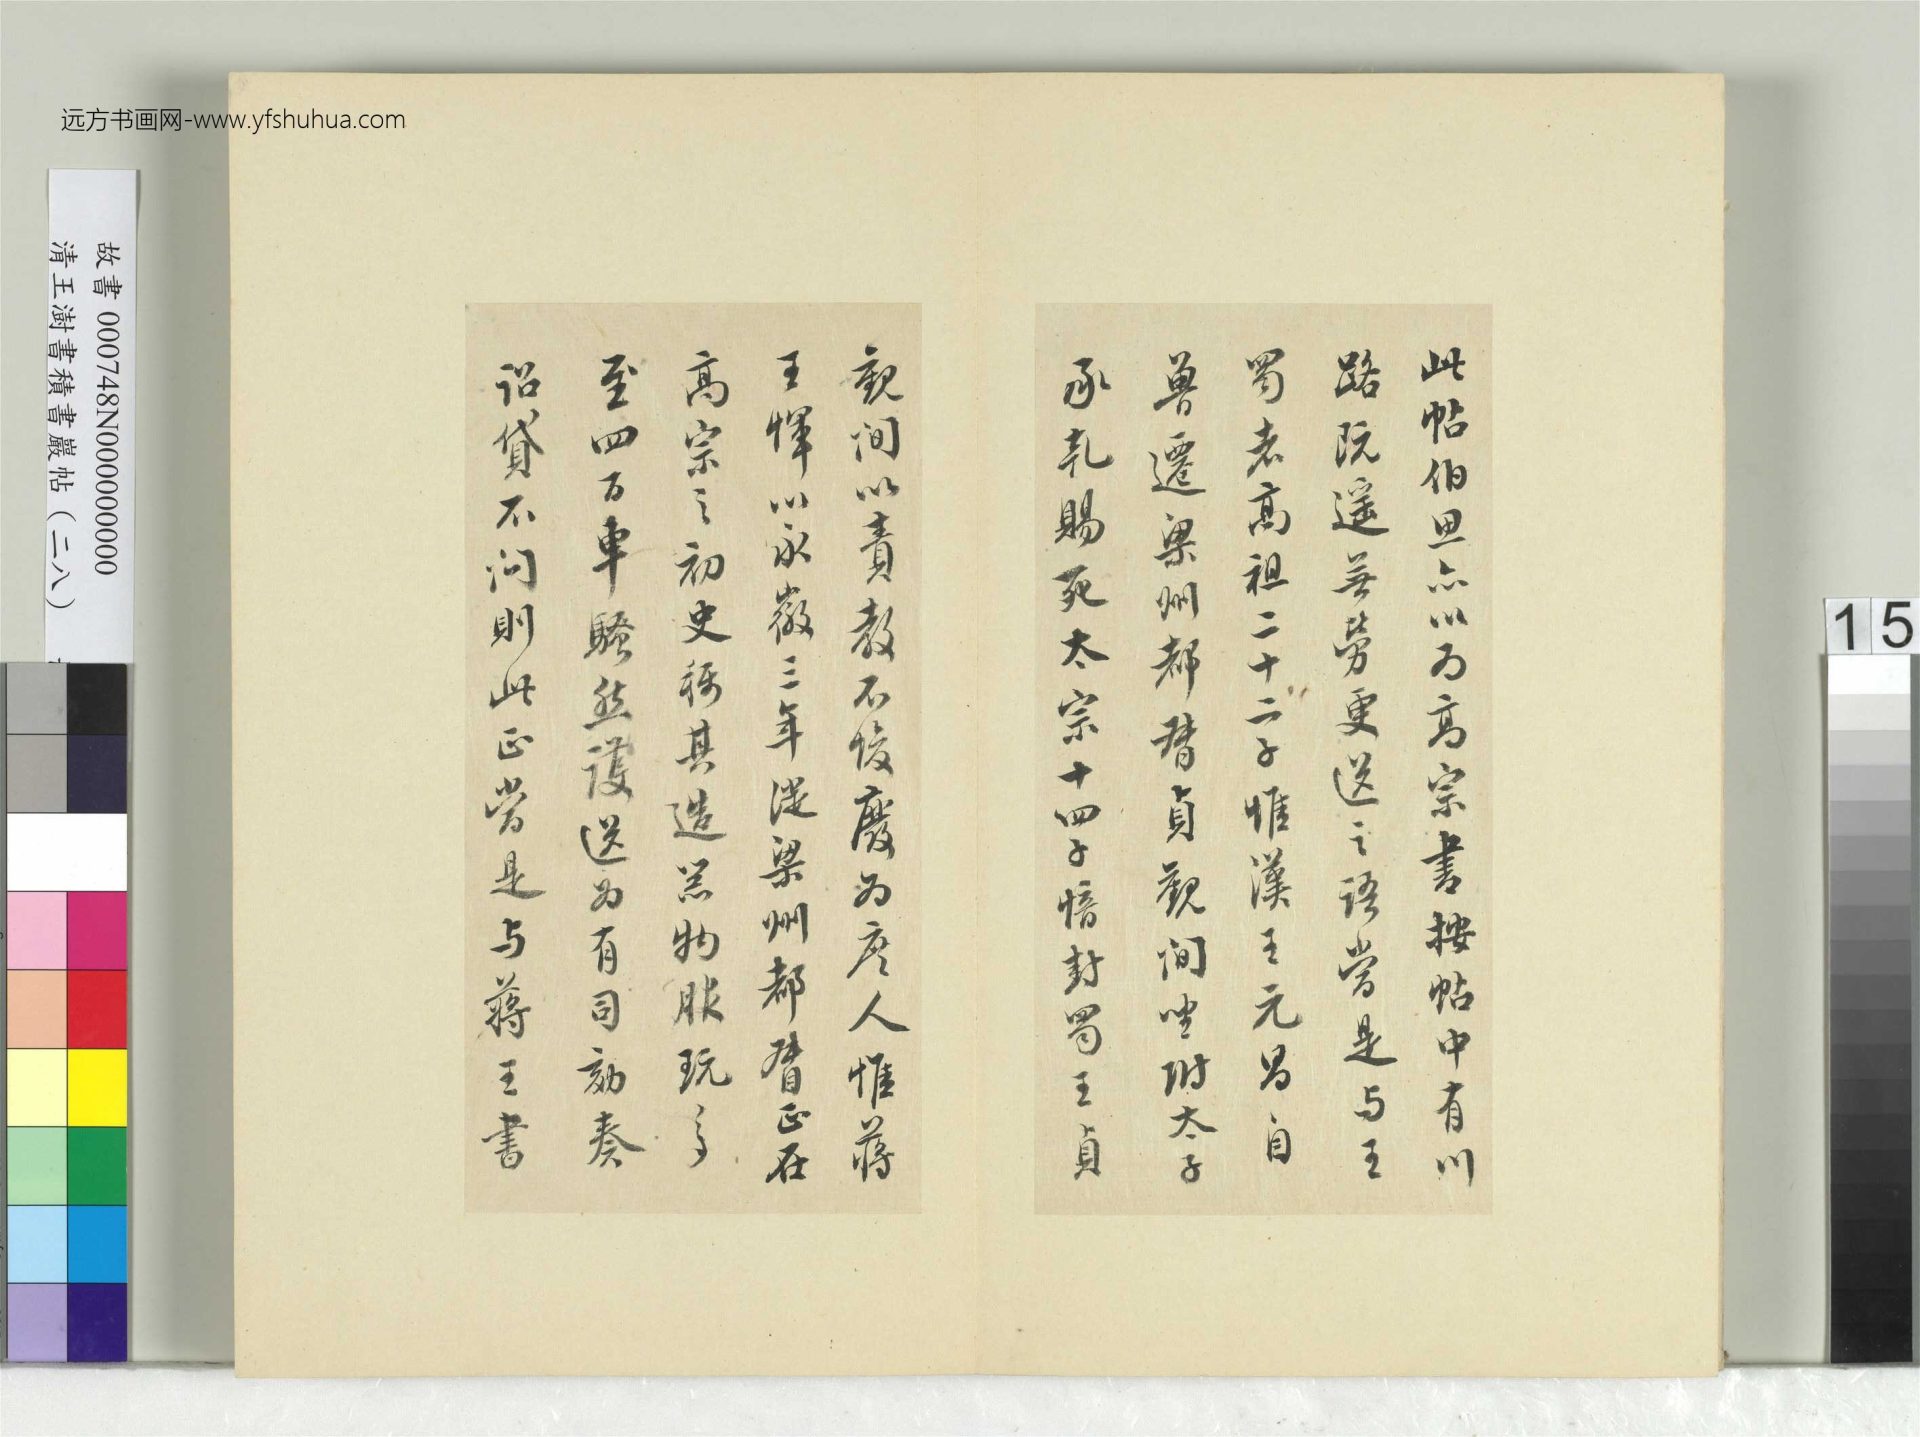 远方书画网-www.yfshuhua.com
故書 000748N000000000
清王澍書積書巖帖（二八）
15
此帖伯思亦以为高宗書按帖中有川
路阮遥無勞更送之語當是与王
蜀者高祖二十二子惟漢王元昌自
魯遷梁州都督貞觀间坐附太子
承乾賜死太宗十四子愔封蜀王貞
觀间以責教不悛廢为庶人惟蔣
王惲以永徽三年徙梁州都督正在
高宗之初史稱其造器物服玩多
至四百車騷然護送为有司劾奏
詔貸不问則此正當是与蔣王書